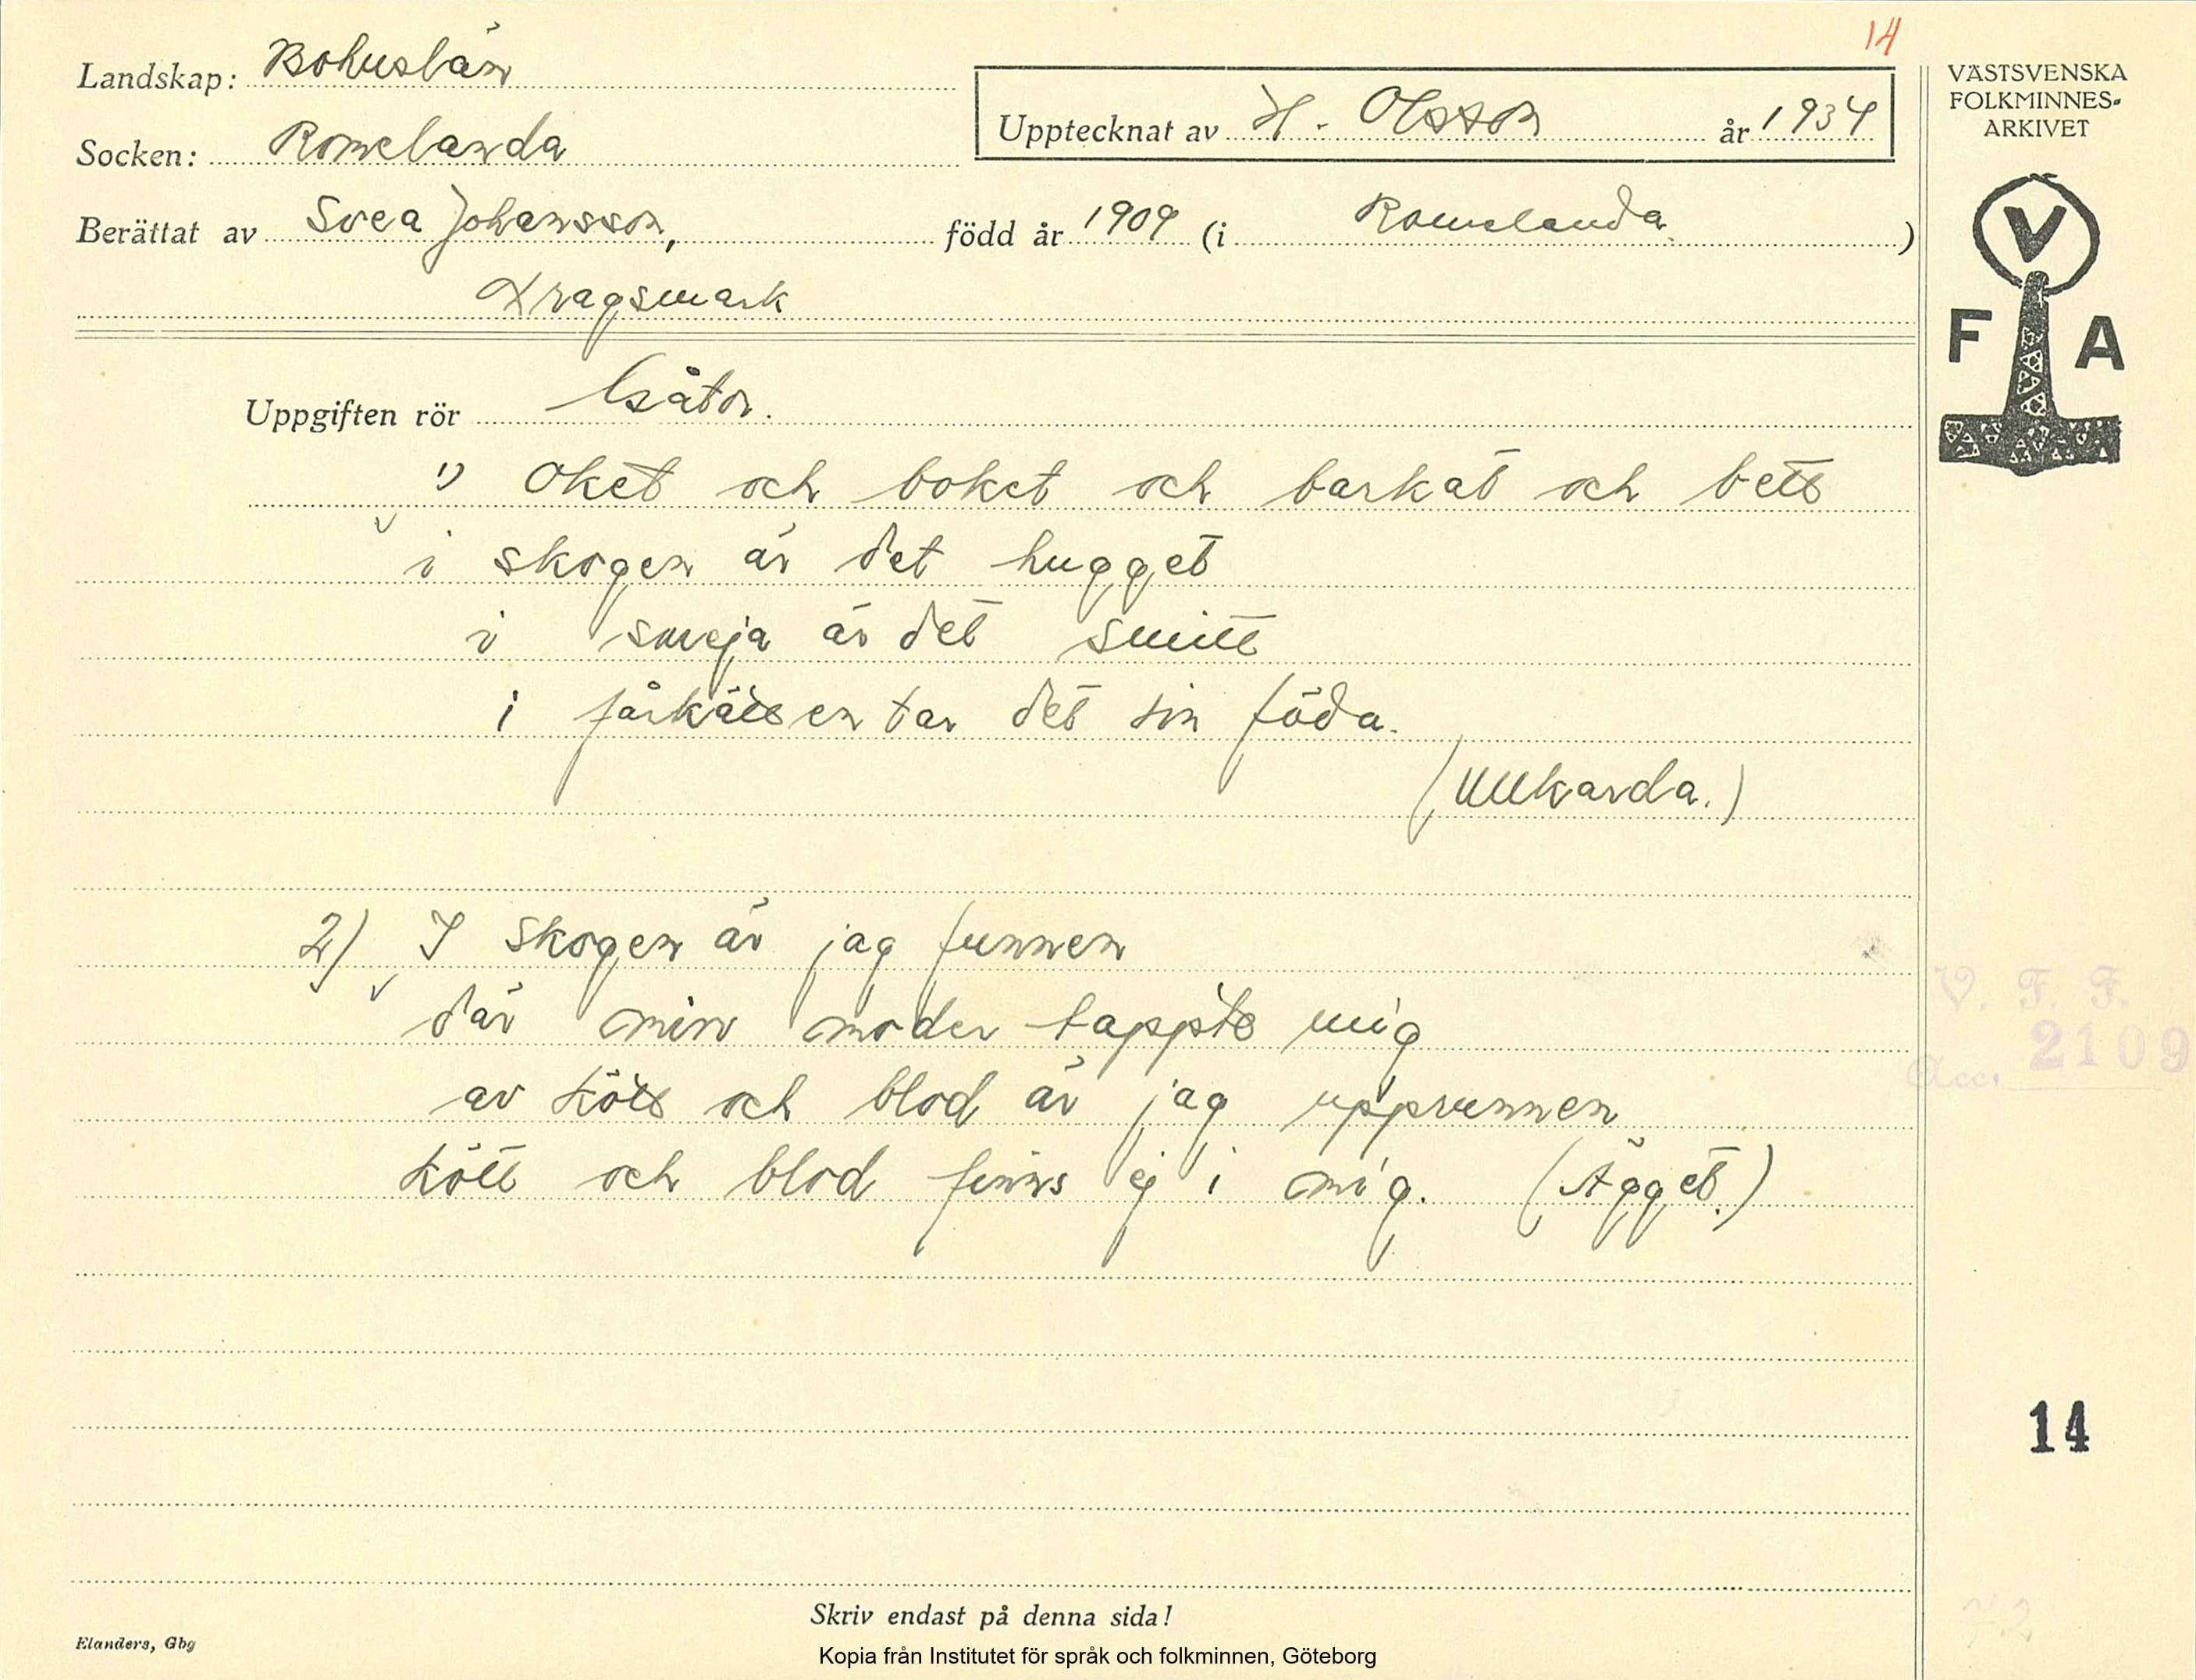 14
Landskap: Bohuslän
Socken: Romelanda
Upptecknat av H. Olsson år 1934
Berättat av Svea Johansson, född år 1909 (i Romelanda.)
Dragsmark
VÄSTSVENSKA
FOLKMINNES-
ARKIVET
V
F A
Uppgiften rör Gåtor.
1) Oket och boket och barkat och bett
i skogen är det hugget
i smeja är det smitt
i fårkätten tar det sin föda.
(Ullkarda.)
2) I skogen är jag funnen
där min moder tappte mig
av kött och blod är jag upprunnen
kött och blod finns ej i mig. (Ägget.)
V. F. F.
Acc. 2109
14
72
Skriv endast på denna sida!
Elanders, Gbg
Kopia från Institutet för språk och folkminnen, Göteborg